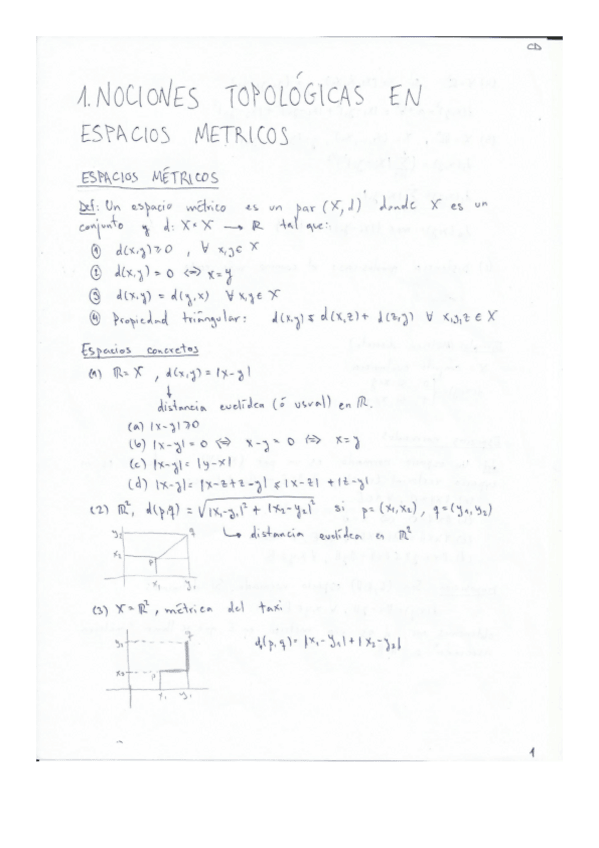 CD
1. NOCIONES TOPOLÓGICAS EN
ESPACIOS METRICOS
ESPACIOS MÉTRICOS
Def: Un espacio métrico es un par (X, d) donde X es un
conjunto y d: X×X → ℝ tal que:
① d(x,y) ≥ 0 , ∀ x,y ∈ X
② d(x,y) = 0 ⇔ x = y
③ d(x,y) = d(y,x) ∀ x,y ∈ X
④ Propiedad triángular: d(x,y) ≤ d(x,z) + d(z,y) ∀ x,y,z ∈ X
Espacios concretos
(1) ℝ = X , d(x,y) = |x-y|
↓
distancia euclídea (ó usual) en ℝ.
(a) |x-y| ≥ 0
(b) |x-y| = 0 ⇔ x-y = 0 ⇔ x = y
(c) |x-y| = |y-x|
(d) |x-y| = |x-z+z-y| ≤ |x-z| + |z-y|
(2) ℝ², d(p,q) = √|x₁-y₁|² + |x₂-y₂|² si p = (x₁,x₂), q = (y₁,y₂)
↳ distancia euclídea en ℝ²
y₂ q
x₂ p
x₁ y₁
(3) X = ℝ², métrica del taxi
d(p,q) = |x₁-y₁| + |x₂-y₂|
y₂ q
x₂ p
x₁ y₁
1